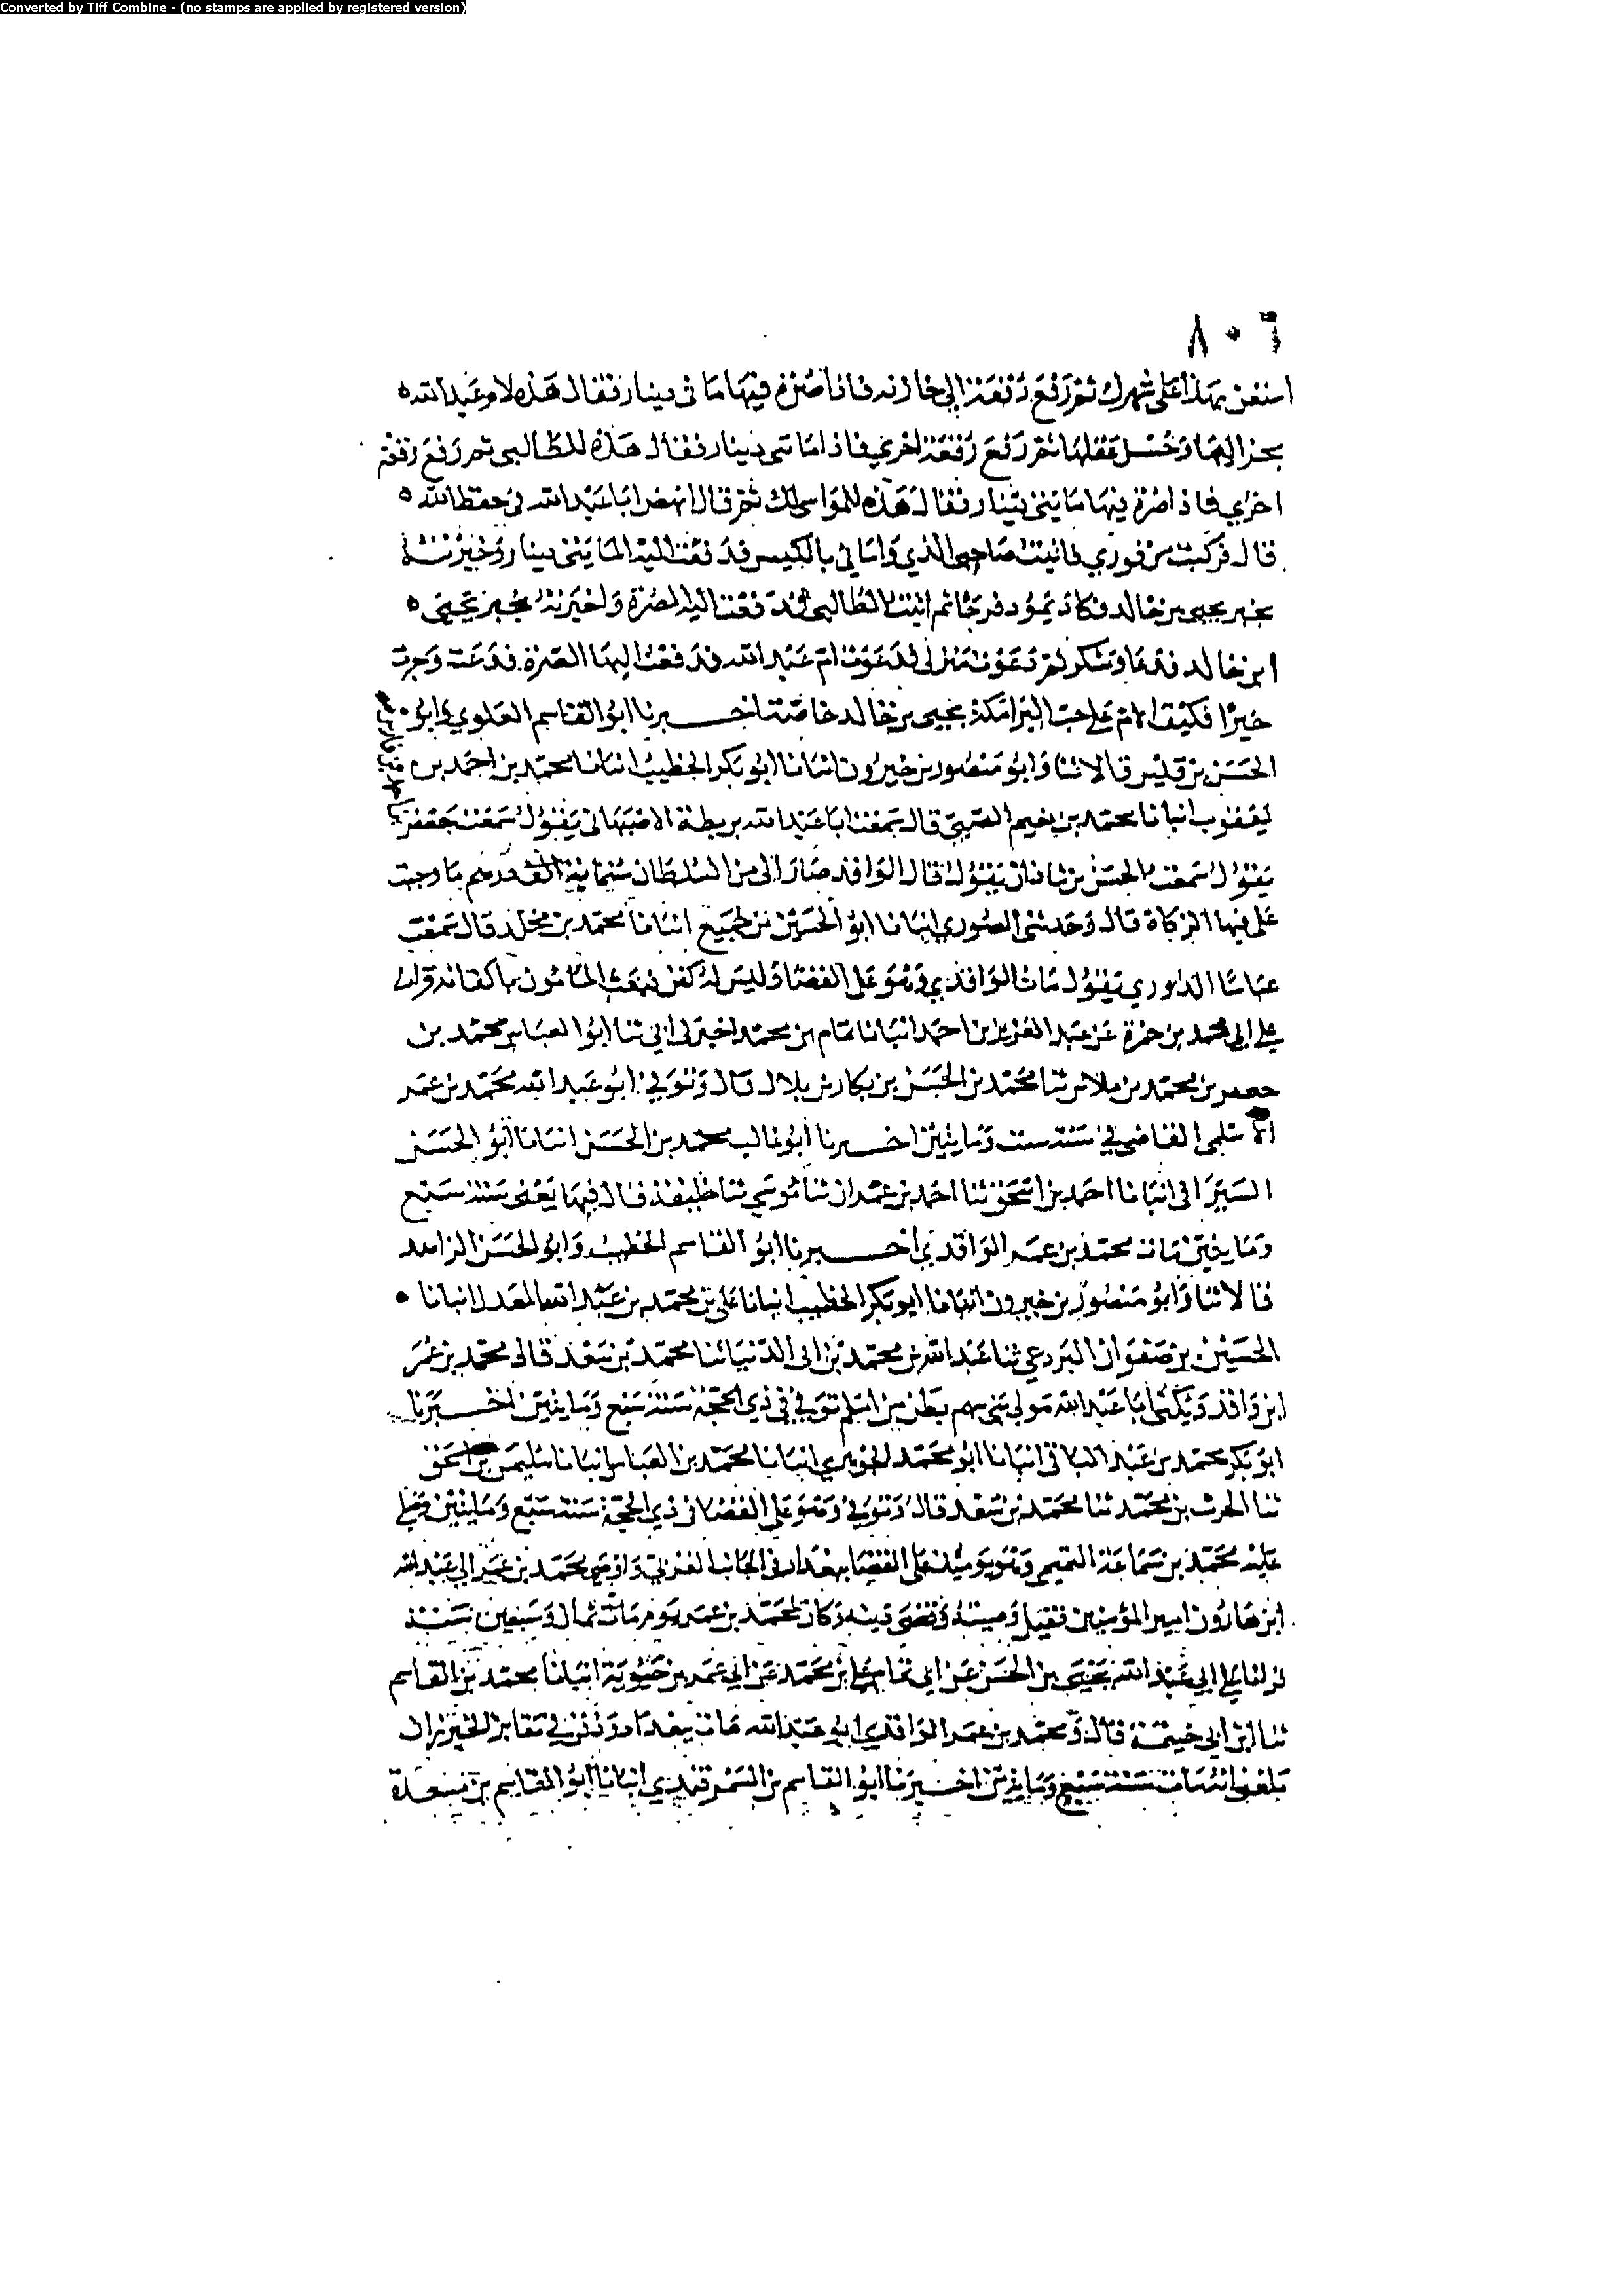 Converted by Tiff Combine - (no stamps are applied by registered version)
٨٠٦
استعن بهذا على شهرك ثم رفع رقعة إلى خازنه فاذا صرة فيها مائتى دينار فقال هذه لام عبد الله
عقلها ثم رفع رقعة اخري فاذا مائتى دينار فقال هذه للطالبى ثم رفع رقعة
اخري فاذا صرة فيها مايتى دينار فقال هذه للمواسى لك ثم قال انهض ابا عبد الله في حفظ الله
قال فركبت من فوري فاتيت صاحبى الذي واسانى بالكيس فدفعت اليه المايتى دينار وخبرته
بخبر يحيى بن خالد فكاد يموت فرحا ثم اتيت الطالبى فدفعت اليه الصرة واخبرته بخبر يحيى
ابن خالد فدعا وشكر ثم دخلت منزلى فدعوت ام عبد الله فدفعت اليها الصرة فدعت وجزت
خيرا فكيف الام على حب البرامكة يحيى بن خالد خاصة اخبرنا ابو القاسم العلوي وابو
الحسن بن قبيس قالا ثنا وابو منصور بن خيرون انبانا ابو بكر الخطيب انبانا محمد بن احمد بن
يعقوب انبانا محمد بن نعيم الضبى قال سمعت ابا عبد الله بن بطة الاصبهانى يقول سمعت جعفر
يقول سمعت الحسن بن شاذان يقول قال الواقد صار الى من السلطان ستماية الف درهم ما وجبت
على فيها الزكاة قال وحدثنى الصوري انبانا ابو الحسين بن جميع انبانا محمد بن مخلد قال سمعت
عباسا الدوري يقول مات الواقدي وهو على القضا وليس له كفن فبعث المامون باكفانه قرات
على ابي محمد بن حمزة عن عبد العزيز بن احمد انبانا تمام بن محمد اخبرنى ابي ثنا ابو العباس محمد بن
جعفر بن محمد بن ملاس ثنا محمد بن الحسن بن بكار بن بلال قال وتوفي ابو عبد الله محمد بن عمر
الاسلمى القاضى في سنة ست ومايتين اخبرنا ابو غالب محمد بن الحسن انبانا ابو الحسن
السيرافى انبانا احمد بن اسحق ثنا احمد بن عمران ثنا موسي ثنا خليفة قال فيها يعنى سنة سبع
ومايتين مات محمد بن عمر الواقدي اخبرنا ابو القاسم الخطيب وابو الحسن الزاهد
قالا ثنا وابو منصور بن خيرون انبانا ابو بكر الخطيب انبانا على بن محمد بن عبد الله المعدل انبانا
الحسين بن صفوان البردعي ثنا عبد الله بن محمد بن ابي الدنيا ثنا محمد بن سعد قال محمد بن عمر
ابن واقد ويكنى ابا عبد الله مولي بني سهم بطن من اسلم توفي في ذي الحجة سنة سبع ومايتين اخبرنا
ابو بكر محمد بن عبد الباقى انبانا ابو محمد الجوهري انبانا محمد بن العباس انبانا سليمن بن اسحق
ثنا الحرث بن محمد ثنا محمد بن سعد قال وتوفي وهو على القضا فى ذي الحجة سنة سبع ومايتين وصلي
عليه محمد بن سماعة التميمي وهو يوميذ على القضا ببغداد فى الجانب الغربي واوصى محمد بن عمر الي عبد الله
ابن هارون امير المؤمنين فقبل وصيته وقضى دينه وكان لمحمد بن عمر يوم مات ثمان وسبعين سنة
قرانا على ابي عبد الله يحيى بن الحسن عن ابي تمام على بن محمد عن ابي عمر بن حيوية انبانا محمد بن القاسم
ثنا ابن ابي خيثمة قال ومحمد بن عمر الواقدي ابو عبد الله مات ببغداد ودفن في مقابر الخيزران
بلغنى انه مات سنة سبع ومايتين اخبرنا ابو القاسم بن السمرقندي انبانا ابو القاسم بن مسعدة